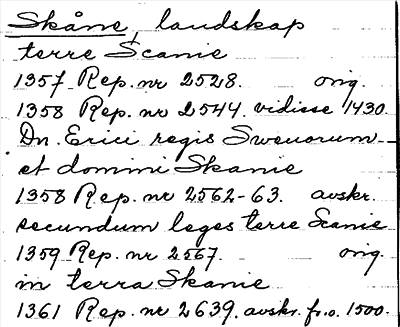 Skåne, landskap
terre Scanie
1357 Rep. nr 2528. orig.
1358 Rep. nr 2544 vidisse 1430.
Dn. Erici regis Sweuorum
et domini Skanie
1358 Rep. nr 2562-63. avskr.
secundum leges terre Scanie
1359 Rep. nr 2567. orig.
in terra Skanie
1361 Rep. nr 2639. avskr. fr. o. 1500.